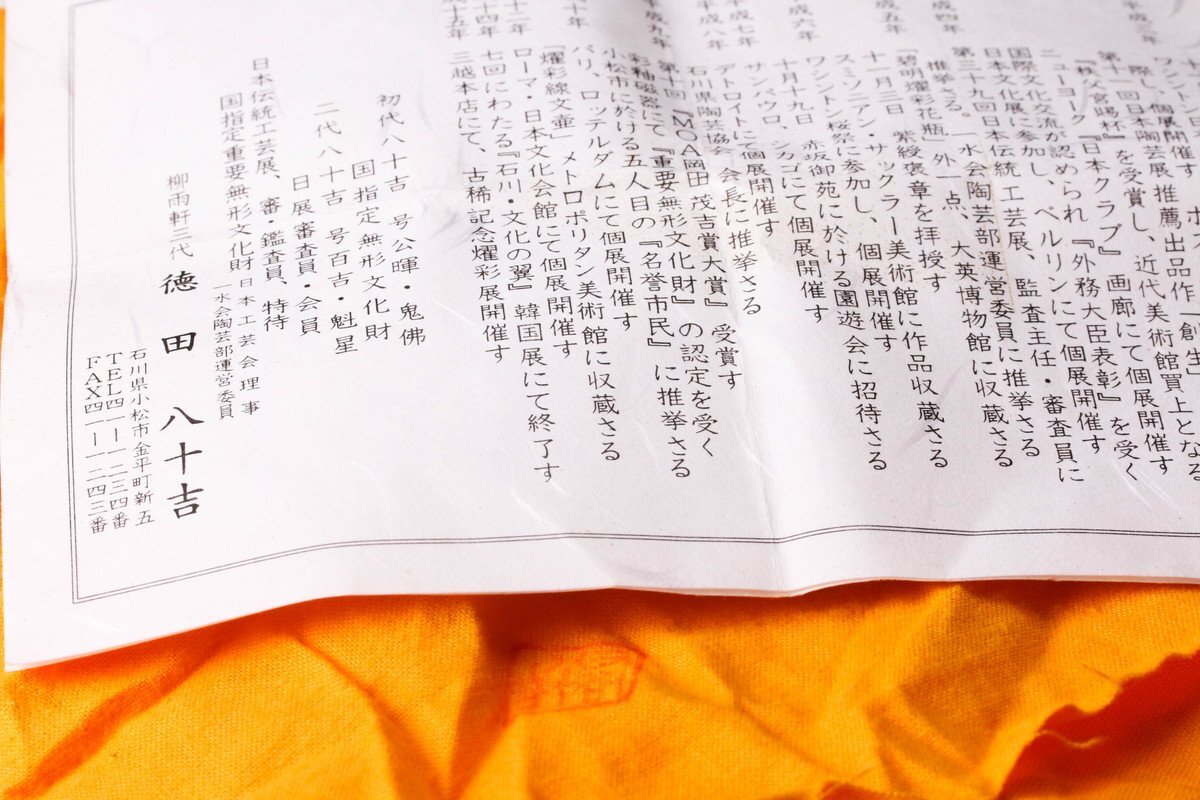 際し、個展開催す
第十一回日本陶芸展推薦出品作『創生』
三年
『秩父宮賜杯』を受賞し、近代美術館買上となる
ニューヨーク『日本クラブ』画廊にて個展開催す
国際文化交流が認められ『外務大臣表彰』を受く
日本文化展に参加し、ベルリンにて個展開催す
成四年 第三十九回日本伝統工芸展、監査主任・審査員に
推挙さる。一水会陶芸部運営委員に推挙さる
『碧明燿彩花瓶』外一点、大英博物館に収蔵さる
成五年 十一月三日 紫綬褒章を拝授す
スミソニアン・サックラー美術館に作品収蔵さる
ワシントン桜祭に参加し、個展開催す
成六年 十月十九日 赤坂御苑に於ける園遊会に招待さる
サンパウロ、シカゴにて個展開催す
成七年 デトロイトにて個展開催す
平成八年 石川県陶芸協会 会長に推挙さる
第十回『MOA岡田茂吉賞大賞』受賞す
成九年 彩釉磁器にて『重要無形文化財』の認定を受く
小松市に於ける五人目の『名誉市民』に推挙さる
十年 パリ、ロッテルダムにて個展開催す
『燿彩線文壷』メトロポリタン美術館に収蔵さる
十二年 ローマ・日本文化会館にて個展開催す
十四年 七回にわたる『石川・文化の翼』韓国展にて終了す
十五年 三越本店にて、古稀記念燿彩展開催す
初代八十吉 号公暉・鬼佛
国指定無形文化財
二代八十吉 号百吉・魁星
日展審査員・会員
日本伝統工芸展、審・鑑査員、特待
国指定重要無形文化財 日本工芸会理事
一水会陶芸部運営委員
柳雨軒三代 徳田八十吉
石川県小松市金平町新五
TEL四一ー一二三四番
FAX四一ー一二四三番